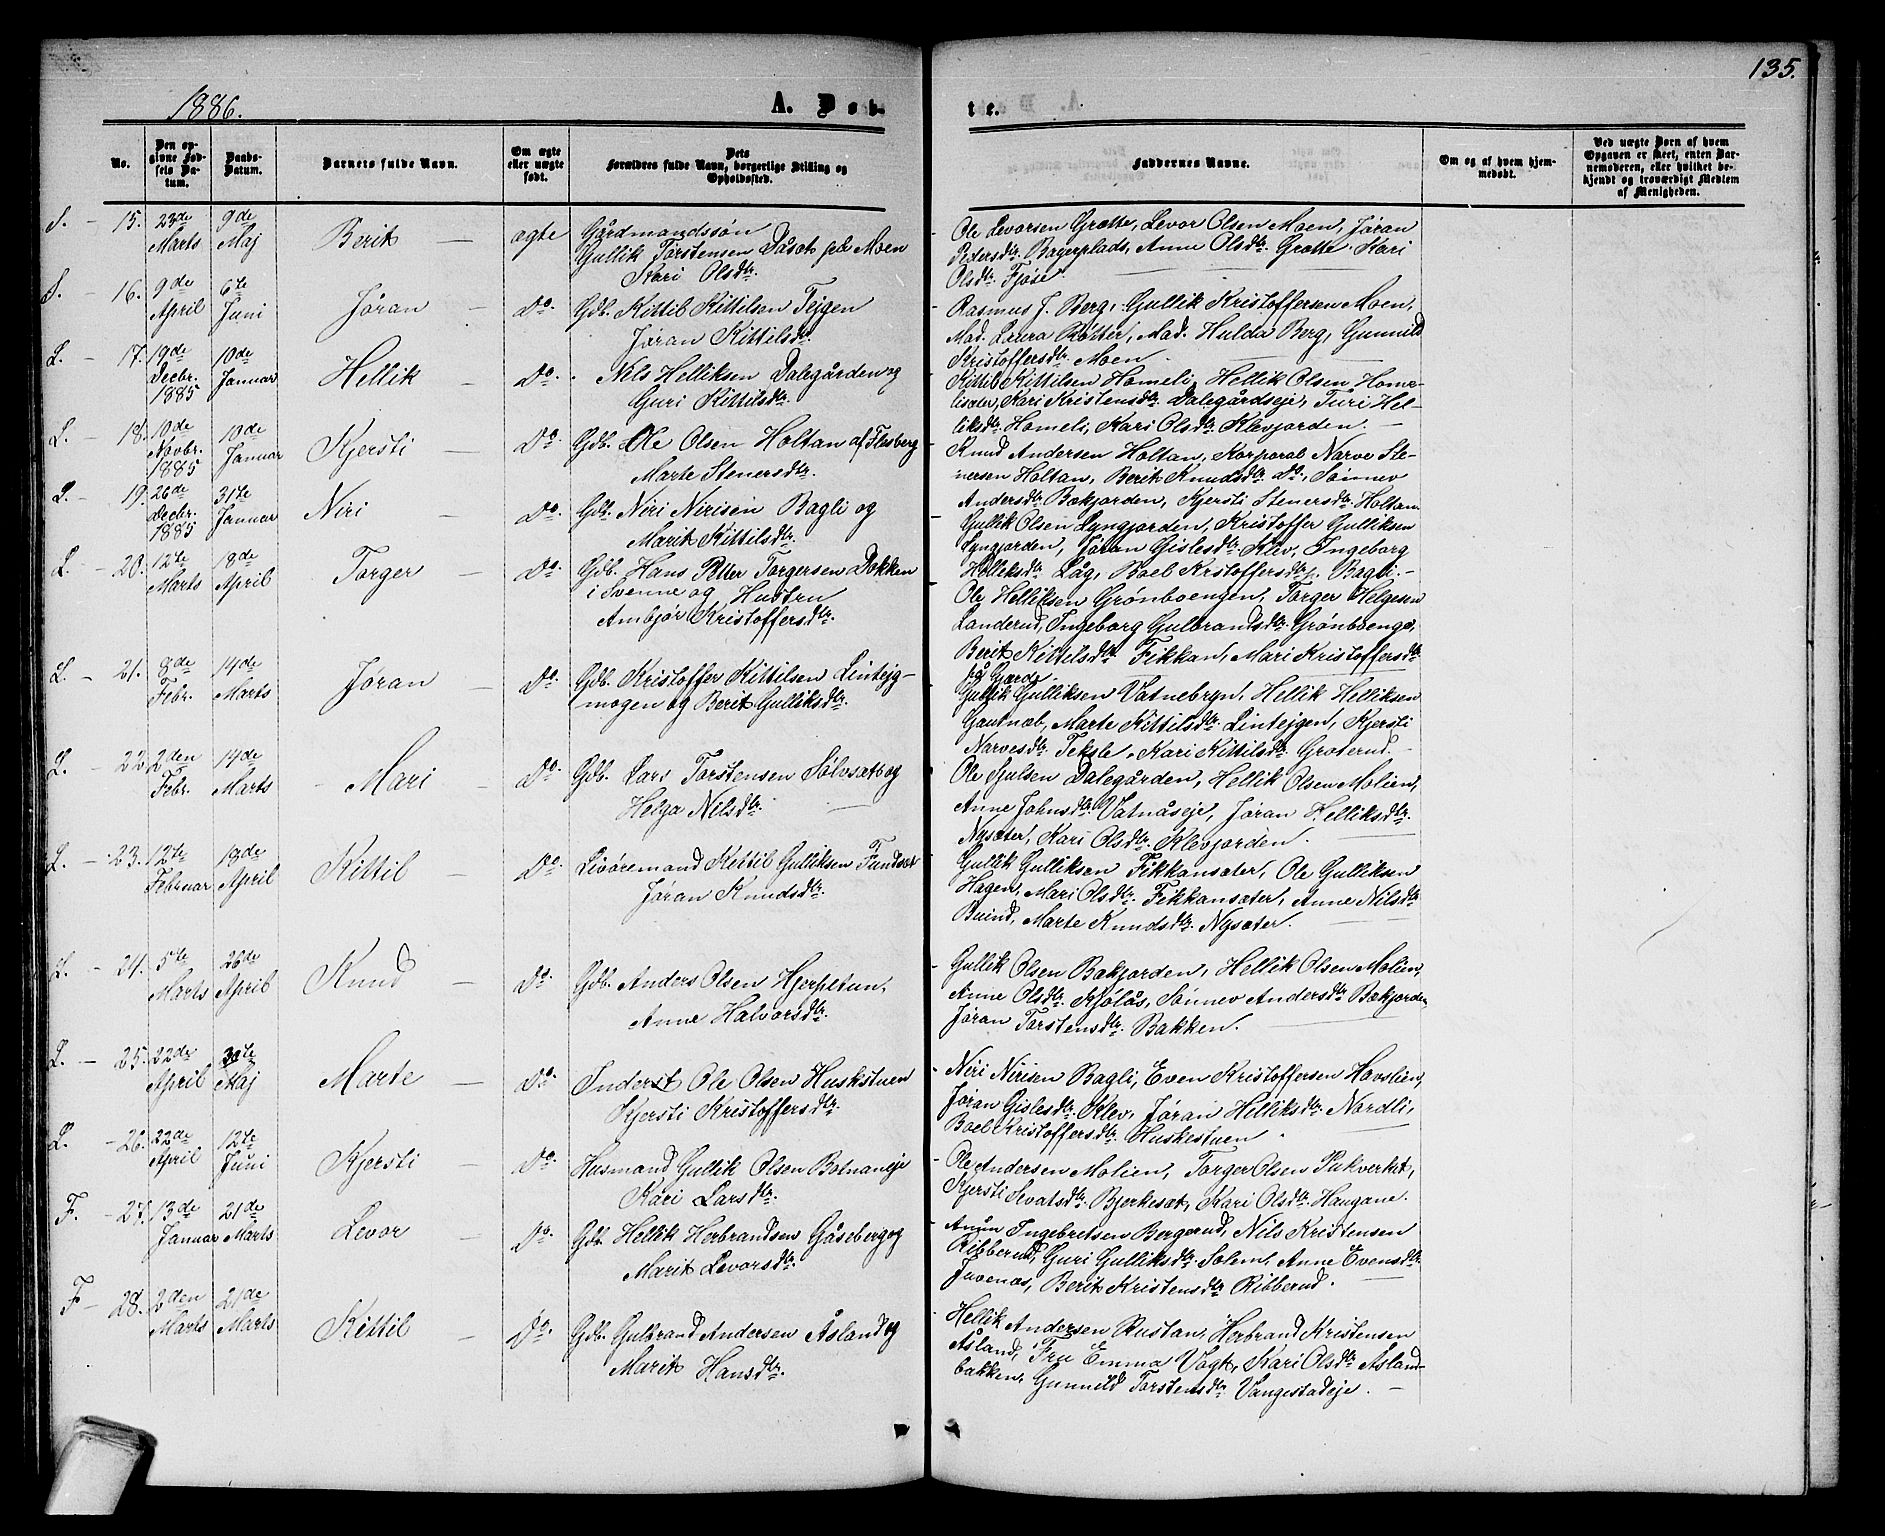 135.
1886.
A. Døb-
te.
No.
Den opgivne Fødsels Datum.
Daabs-Datum.
Barnets fulde Navn.
Om ægte eller uægte født.
Dets Forældres fulde Navn, borgerlige Stilling og Opholdssted.
Faddernes Navne.
Om og af hvem hjemmedøbt.
Ved uægte Børn af hvem Opgaven er skeet, enten Barnemoderen, eller hvilket bekjendt og troværdigt Medlem af Menigheden.
S. – 15. 23de Marts 9de Maj Berit – ægte Gårdmandssøn
Gullik Torstensen Dåset på Moen
Kari Olsdtr.
Ole Levorsen Grøtte, Levor Olsen Moen, Jøran
Pedersdtr. Bagerplads, Anne Olsdtr. Grøtte Kari
Olsdtr. Fjøse
S. – 16. 9de April 6te Juni Jøran – Do. Gdb. Kittil Kittilsen Tejgen
Jøran Kittilsdtr.
Rasmus J. Berg, Gullik Kristoffersen Moen,
Mad. Laura Rotter, Mad. Hulda Berg, Gunnild
Kristoffersdtr. Moen.
L. – 17. 19de Decbr. 1885 10de Januar Hellik – Do. Nels Helliksen Dalegården og
Guri Kittilsdtr.
Kittil Kittilsen Homeli, Hellik Olsen Home-
lisæter, Kari Kristensdtr. Dalegårdseje, Turi Hel-
liksdtr. Homeli, Kari Olsdtr. Klevjorden. –
L. – 18. 10de Novbr. 1885 10de Januar Kjersti – Do. Gdb. Ole Olsen Holtan af Flesberg
Marte Stenersdtr.
Knud Andersen Holtan, Korporal Narve Ste-
nersen Holtan, Berit Knudsdtr. Do., Sønnev
Andersdtr. Bækjorden, Kjersti Stenersdtr. Holtan
L. – 19. 26de Decbr. 1885 31te Januar Niri – Do. Gdb. Niri Nirisen Bagli og
Marit Kittilsdtr.
Gullik Olsen Lyngjorden, Kristoffer Gulliksen
Lyngjorden, Jøran Gislesdtr. Klev, Ingeborg
Helliksdtr. Låg, Boel Kristoffersdtr. Bagli. –
L. – 20. 12te Marts 18de April Torger – Do. Gdb. Hans Petter Torgersen Dokken
i Svenne og Hustru
Ambjør Kristoffersdtr.
Ole Helliksen Grønboengen, Torger Helgesen
Landerud, Ingeborg Gulbrandsdtr. Grønboenge,
Berit Kittelsdtr. Fikkan, Mari Kristoffersdtr.
på Gjærde.
L. – 21. 8de Febr. 14de Marts Jøran – Do. Gdb. Kristoffer Kittilsen Lintejg-
mogen og Berit Gulliksdtr.
Gullik Gulliksen Vatnebryn, Hellik Helliksen
Gautnæb, Marte Kittilsdtr. Lintejgen, Kjersti
Narvesdtr. Teksle, Kari Kittilsdtr. Groterud. –
L. – 22. 2den Febr. 14de Marts Mari – Do. Gdb. Lars Torstensen Sølvsæt og
Helga Nilsdtr.
Ole Sjulsen Dalegården, Hellik Olsen Molien,
Anne Johnsdtr. Vatnåseje, Jøran Helliksdtr.
Nysæter, Kari Olsdtr. Klevjorden.
L. – 23. 12te Februar 18de April Kittil – Do. Livøremand Kittil Gulliksen Fundsæt
Jøran Knudsdtr.
Gullik Gulliksen Fikkansæter, Ole Gulliksen
Hagen, Mari Olsdtr. Fikkansæter, Anne Nilsdtr
Buind, Marte Knudsdtr. Nysæter.
L. – 24. 5te Marts 26de April Knud – Do. Gdb. Anders Olsen Hjerpetun,
Anne Halvorsdtr.
Gullik Olsen Bækjorden, Hellik Olsen Molien,
Anne Olsdtr. Kjølås, Sønnev Andersdtr Bækjorden
Jøran Torstensdtr. Bakken.
L. – 25. 22de April 30te Maj Marte – Do. Inderst Ole Olsen Huskstuen
Kjersti Kristoffersdtr.
Niri Nirisen Bagli, Even Kristoffersen Hovslien,
Jøran Gislesdtr. Klev, Jøran Helliksdtr. Nordli,
Boel Kristoffersdtr. Huskestuen
L. – 26. 22de April 12te Juni Kjersti – Do. Husmand Gullik Olsen Botnaneje
Kari Larsdtr.
Ole Andersen Molien, Torger Olsen Pukverket,
Kjersti Sevatsdtr. Bjerkesæt, Kari Olsdtr. Haugane.
F. – 27. 13de Januar 21de Marts Levor – Do. Gdb. Hellik Herbrandsen Gåseberg og
Marit Levorsdtr.
Anun Ingebretsen Bergerud, Nils Kristensen
Ribberud, Guri Gulliksdtr. Solem, Anne Evensdtr.
Juvenæs, Berit Kristensdtr. Ribberud.
F – 28. 2den Marts 21de Marts Kittil – Do. Gdb. Gulbrand Andersen Åsland og
Marit Hansdtr.
Hellik Andersen Rustan, Herbrand Kristensen
Åsland, Fru Emma Vogt, Kari Olsdtr Åsland-
bakken, Gunnild Torstensdtr. Vangestadeje. –